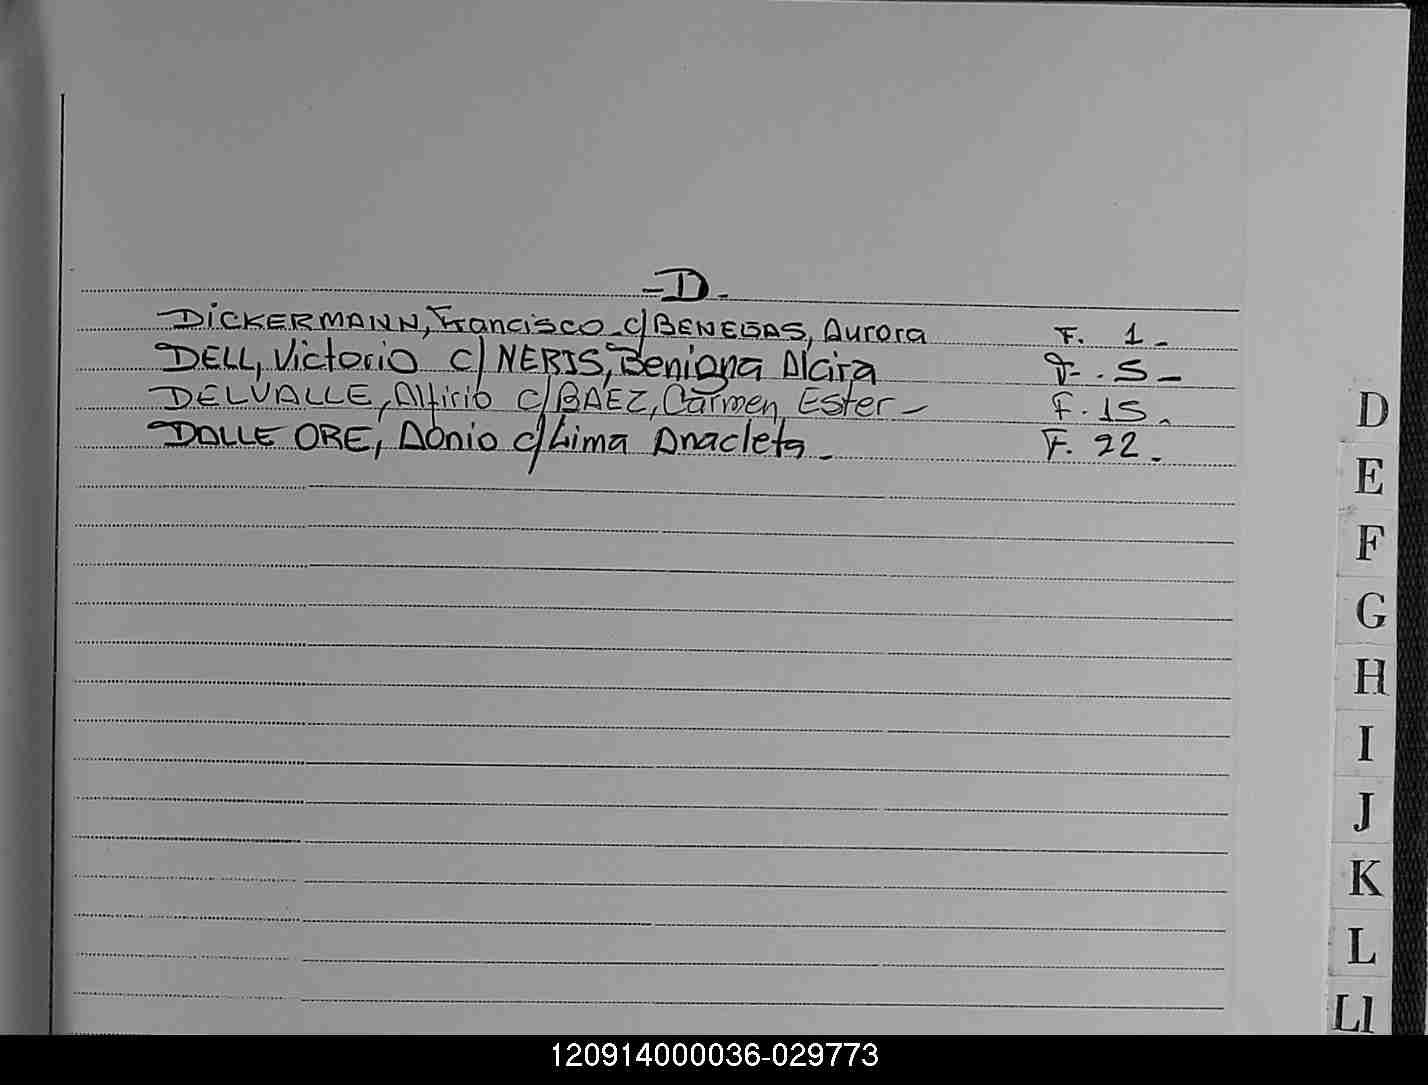 -D-
DICKERMANN, Francisco c/ BENEGAS, Aurora F. 1 -
DELL, Victorio c/ NERIS, Benigna Alcira F. 5 -
DELVALLE, Alfirio c/ BAEZ, Carmen Ester - F. 15 -
DALLE ORE, Adonio c/ Lima Anacleta - F. 22 -
D
E
F
G
H
I
J
K
L
Ll
120914000036-029773